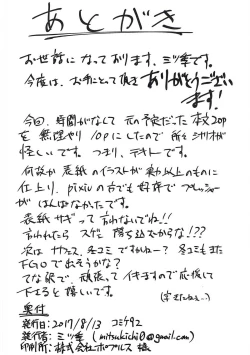 あとがき
お世話になっております、ミツ季です。
今度は、お手にとって頂き ありがとうござい
ます!
今回、時間がなくて 元の予定だった本文20p
を無理やり10pにしたので 所々シナリオが
怪しいです。つまり、テキトーです。
何故か 表紙のイラストが実力以上のものに
仕上り、pixivの方でも好評で プレッシャー
がはんぱなかったです。
表紙サギって言わないでね!!
言われたら スゲェ 落ち込むからな!??
次は サンクリ、冬コミですかねー? 冬コミもまた
FGOで出そうかな?
てな訳で、頑張ってイキますので応援して
下さると嬉しいです。
奥付
発行日:2017/8/13 コミケ92
発行者:ミツ季 (mitsukichi0@gmail.com)
印刷所:株式会社ポプルス 様